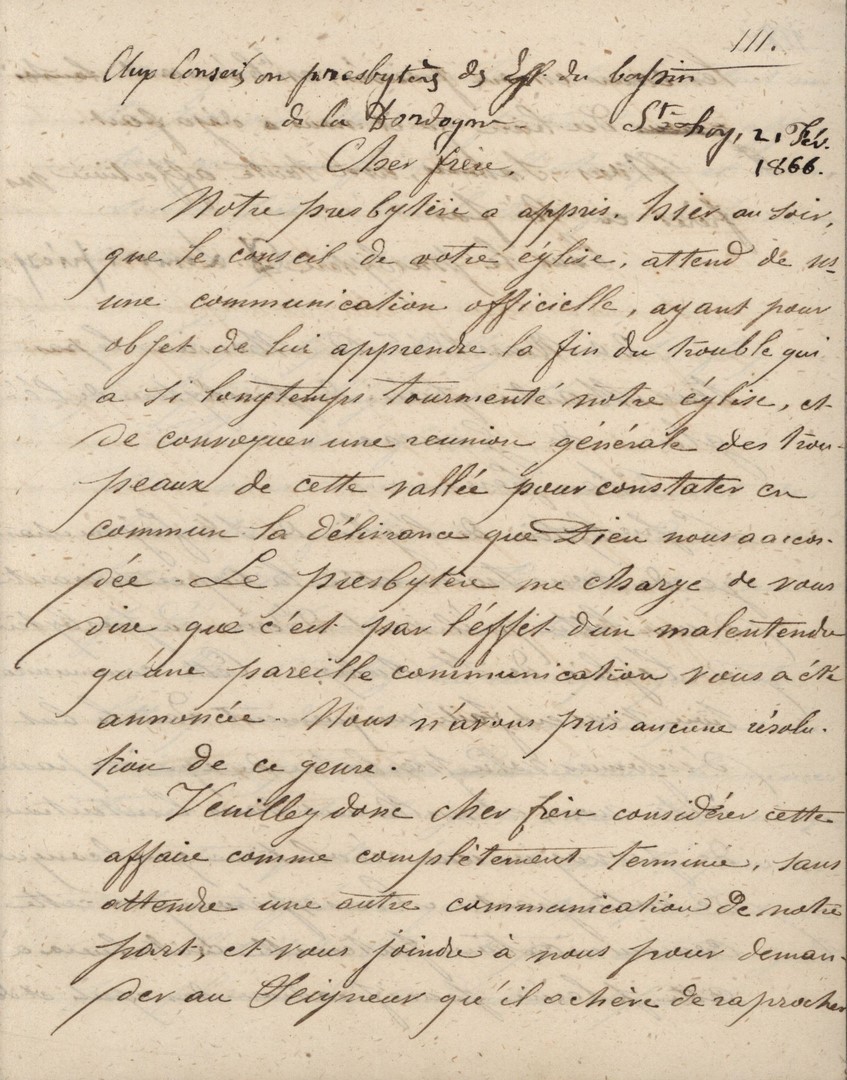 III.
Aux Conseils ou presbytères des Égl. du bassin
de la Dordogne.
St-Foy, 21 Fév.
1866.
Cher frère,
Notre presbytère a appris, hier au soir,
que le conseil de votre église, attend de ns
une communication officielle, ayant pour
objet de lui apprendre la fin du trouble qui
a si longtemps tourmenté notre église, et
de convoquer une reunion générale des trou-
peaux de cette vallée pour constater en
commun la délivrance que Dieu nous a accor-
dée. Le presbytère me charge de vous
dire que c'est par l'éffet d'un malentendu
qu'une pareille communication vous a été
annoncée. Nous n'avons pris aucune résolu-
tion de ce genre.
Veuillez donc cher frère considérer cette
affaire comme complètement terminée, sans
attendre une autre communication de notre
part, et vous joindre à nous pour deman-
der au Seigneur qu'il achève de raprocher